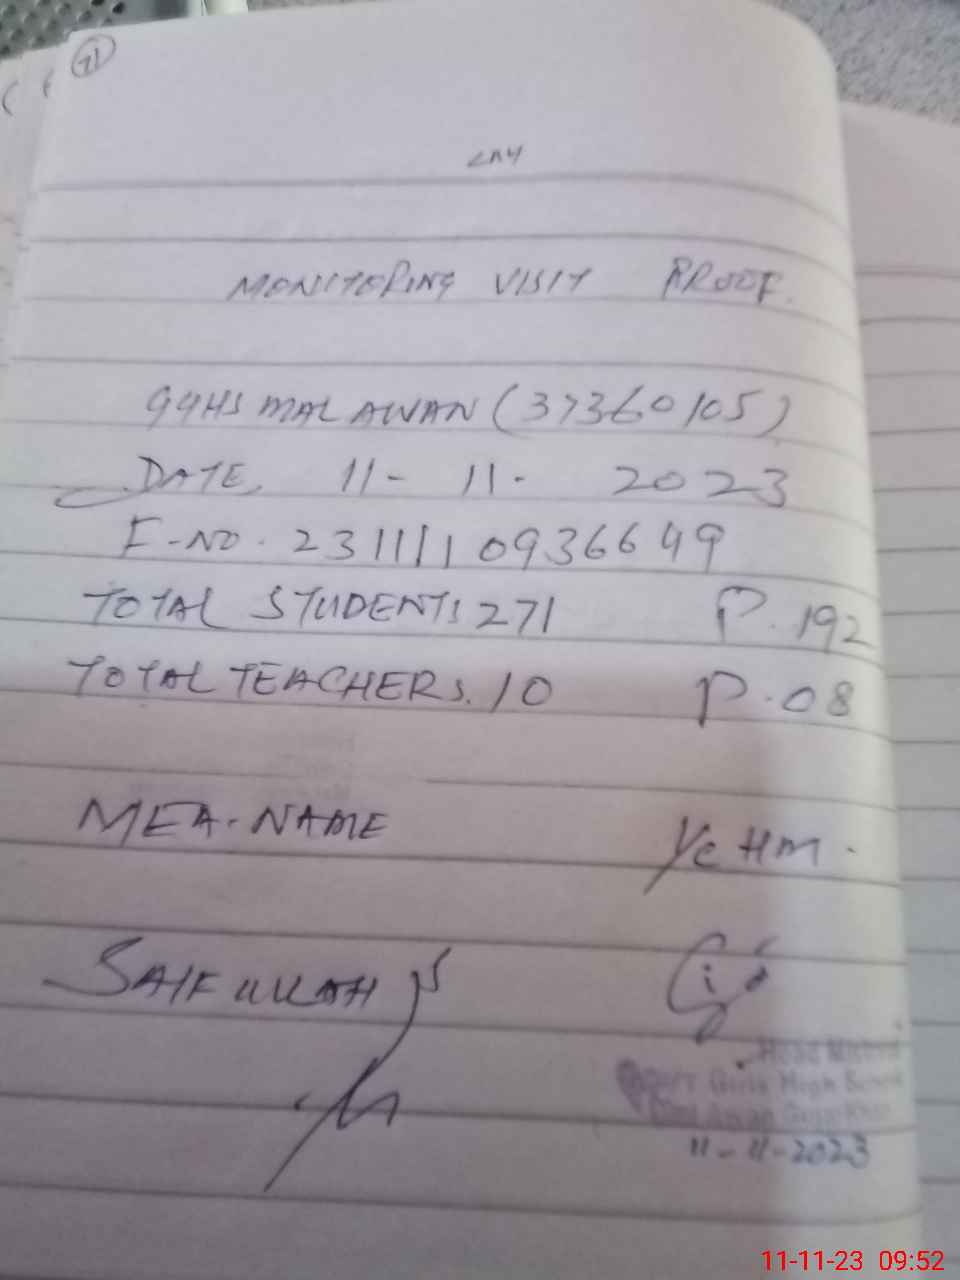 71
MONITORING VISIT PROOF.
GGHS MAL AWAN (37360105)
DATE. 11- 11- 2023
F-NO. 231111 10936649
TOTAL STUDENTS 271 P. 192
TOTAL TEACHERS. 10 P. 08
MEA. NAME
I/c HM.
SAIFULLAH
Head Mistress
Govt Girls High School
Mal Awan Gujar Khan
11-11-2023
11-11-23 09:52